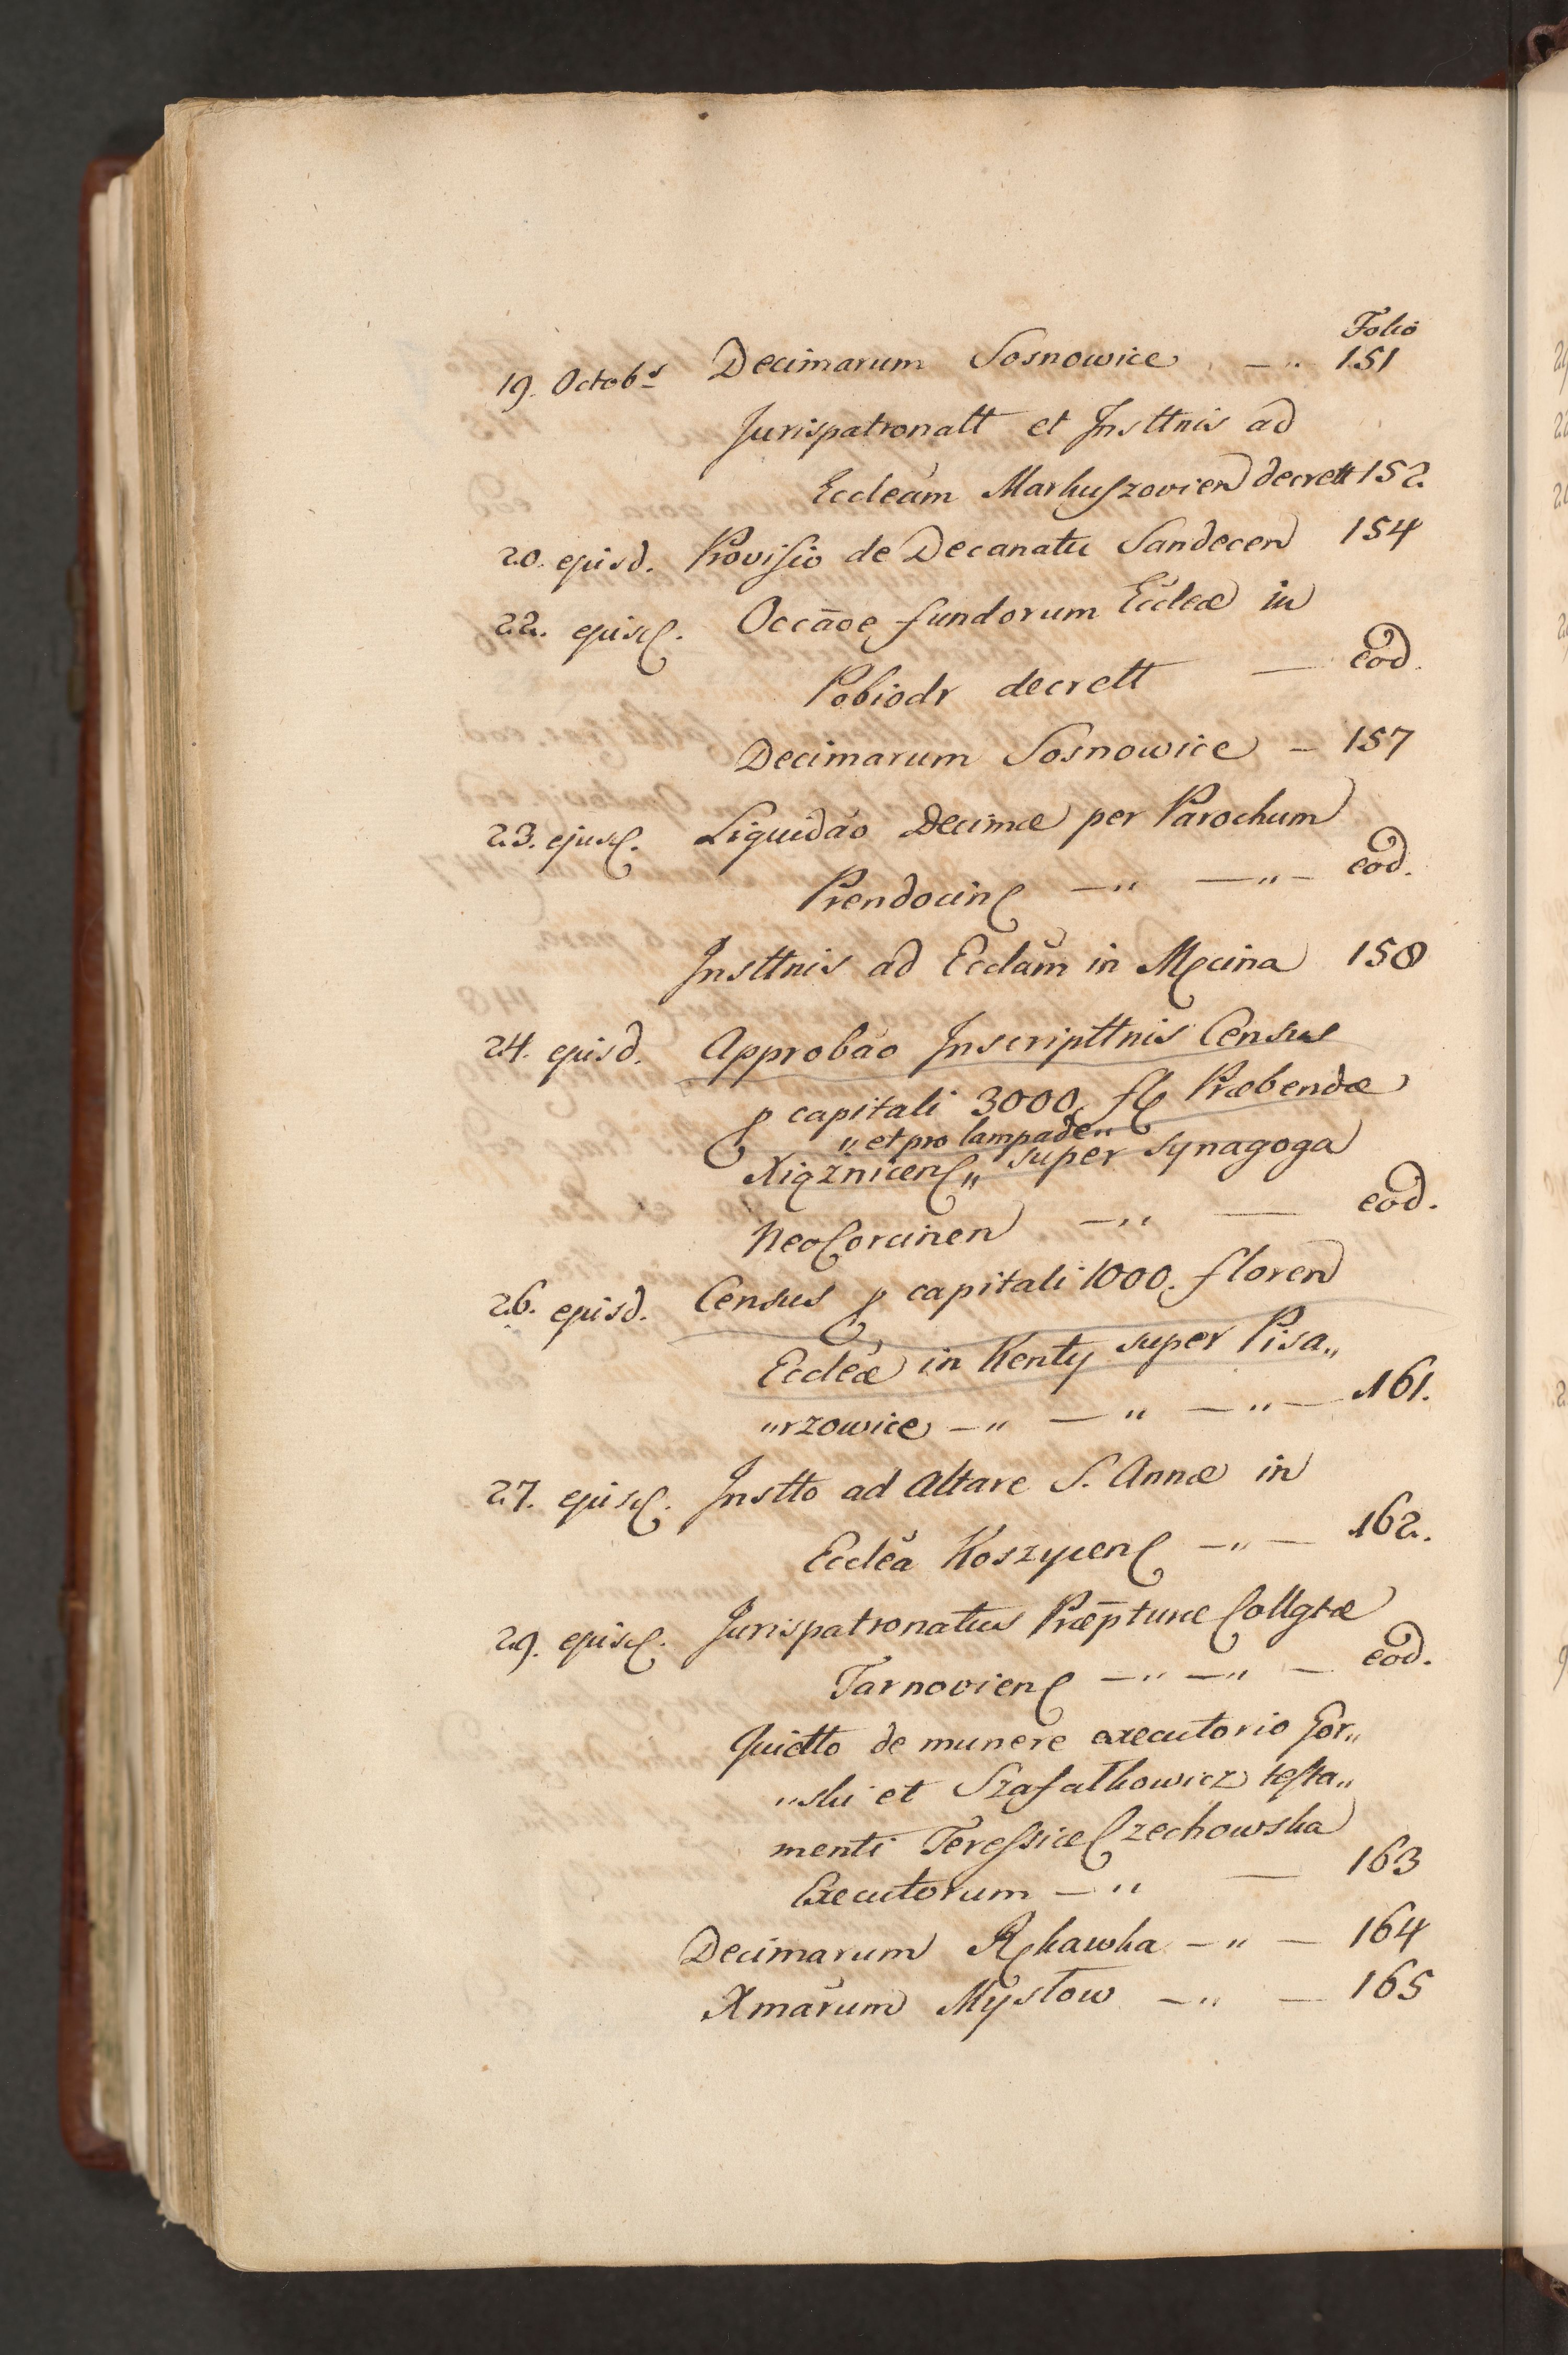 Folio
19. Octobs Decimarum Sosnowice — „ 151
Jurispatronatt et Insttnis ad
Eccleam Markuszovien decrett 152
20. ejusd. Provisio de Decanatu Sandecen 154
22. ejusd. Occāoe fundorum Eccleæ in
Pobiodr decrett — eod.
Decimarum Sosnowice — 157
23. ejusd. Liquidao Decimæ per Parochum
Prendocin — „ — „ — eod.
Insttnis ad Ecclam in Męcina 158
24. ejusd. Approbao Inscripttnis Census
p capitali 3000 fl Præbendæ
„ et pro lampade „
Xiąznicen „ super synagoga
NeoCorcinen — „ — eod.
26. ejusd. Census p capitali 1000. floren
Eccleæ in Kenty super Pisa„
„rzowice — „ — „ — „ — 161.
27. ejusd. Instto ad Altare S. Annæ in
Ecclea Koszycen — „ — 162.
29. ejusd. Jurispatronatus Præpturæ Collgtæ
Tarnovien — „ — „ — eod.
Quietto de munere executorio Gor„
„ski et Szafatkowicz testa„
menti Teressiæ Czechowska
Executorum — „ — 163
Decimarum Rękawka — „ — 164
Xmarum Mysłow — „ — 165